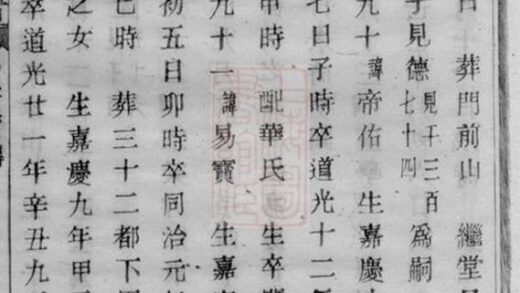 葬門前山 繼堂
子見德 見于三百七十四 爲嗣
九十 諱帝佑 生嘉慶
七日子時卒道光十二年
申時 配華氏 生卒
九十一 諱易寶 生嘉
初五日卯時卒同治元
巳時 葬三十二都下
之女 生嘉慶九年甲
卒道光廿一年辛丑九